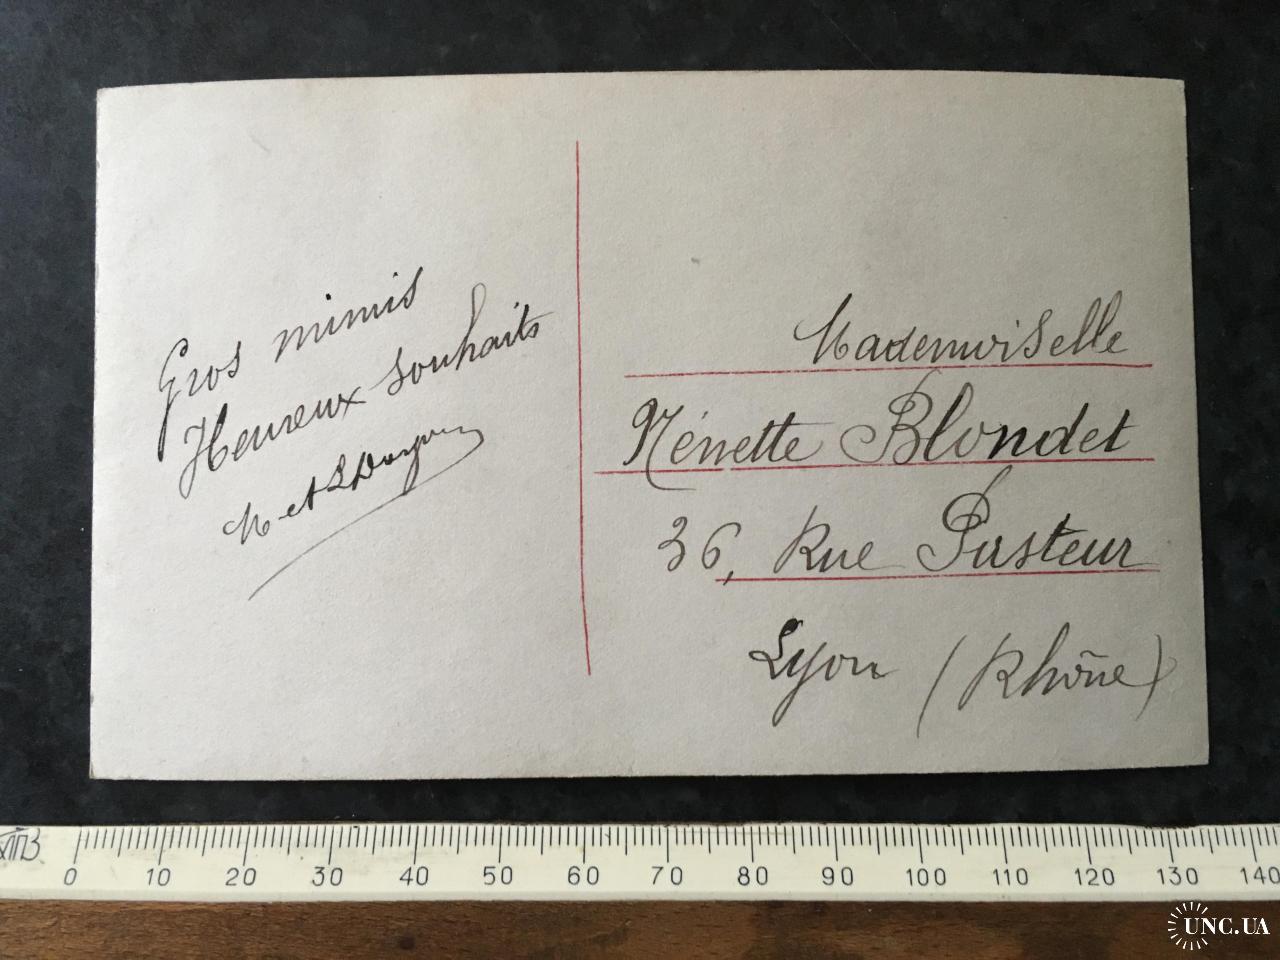 Gros mimis
Heureux souhaits
M et L
Mademoiselle
Nénette Blondet
36, Rue Pasteur
Lyon (Rhône)
0 10 20 30 40 50 60 70 80 90 100 110 120 130 140
UNC.UA